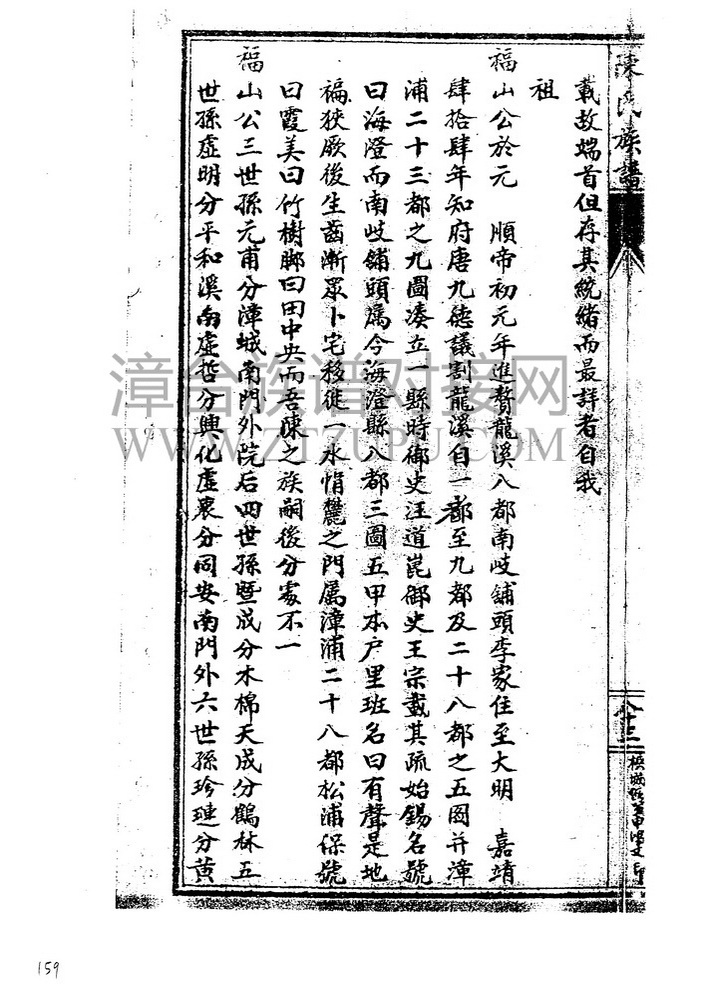 陳氏族譜
載故端首但存其統緒而最詳者自我
祖
福山公於元　順帝初元年進贅龍溪八都南岐鋪頭李家住至大明　嘉靖
肆拾肆年知府唐九德議割龍溪自一都至九都及二十八都之五圖并漳
浦二十三都之九圖湊立一縣時御史汪道崑御史王宗載其疏始錫名號
曰海澄而南岐鋪頭屬今海澄縣八都三圖五甲本户里班名曰有聲是地
褊狹厥後生齒漸眾卜宅移徙一水悄麓之門属漳浦二十八都松浦保號
曰霞美曰竹樹脚曰田中央而吾陳之族嗣後分處不一
福山公三世孫元甫分漳城南門外院后四世孫暨成分木棉天成分鶴林五
世孫虛明分平和溪南虛哲分興化虛衷分同安南門外六世孫珍璉分黃
八十三
漳台族谱对接网
WWW.ZTZUPU.COM
159